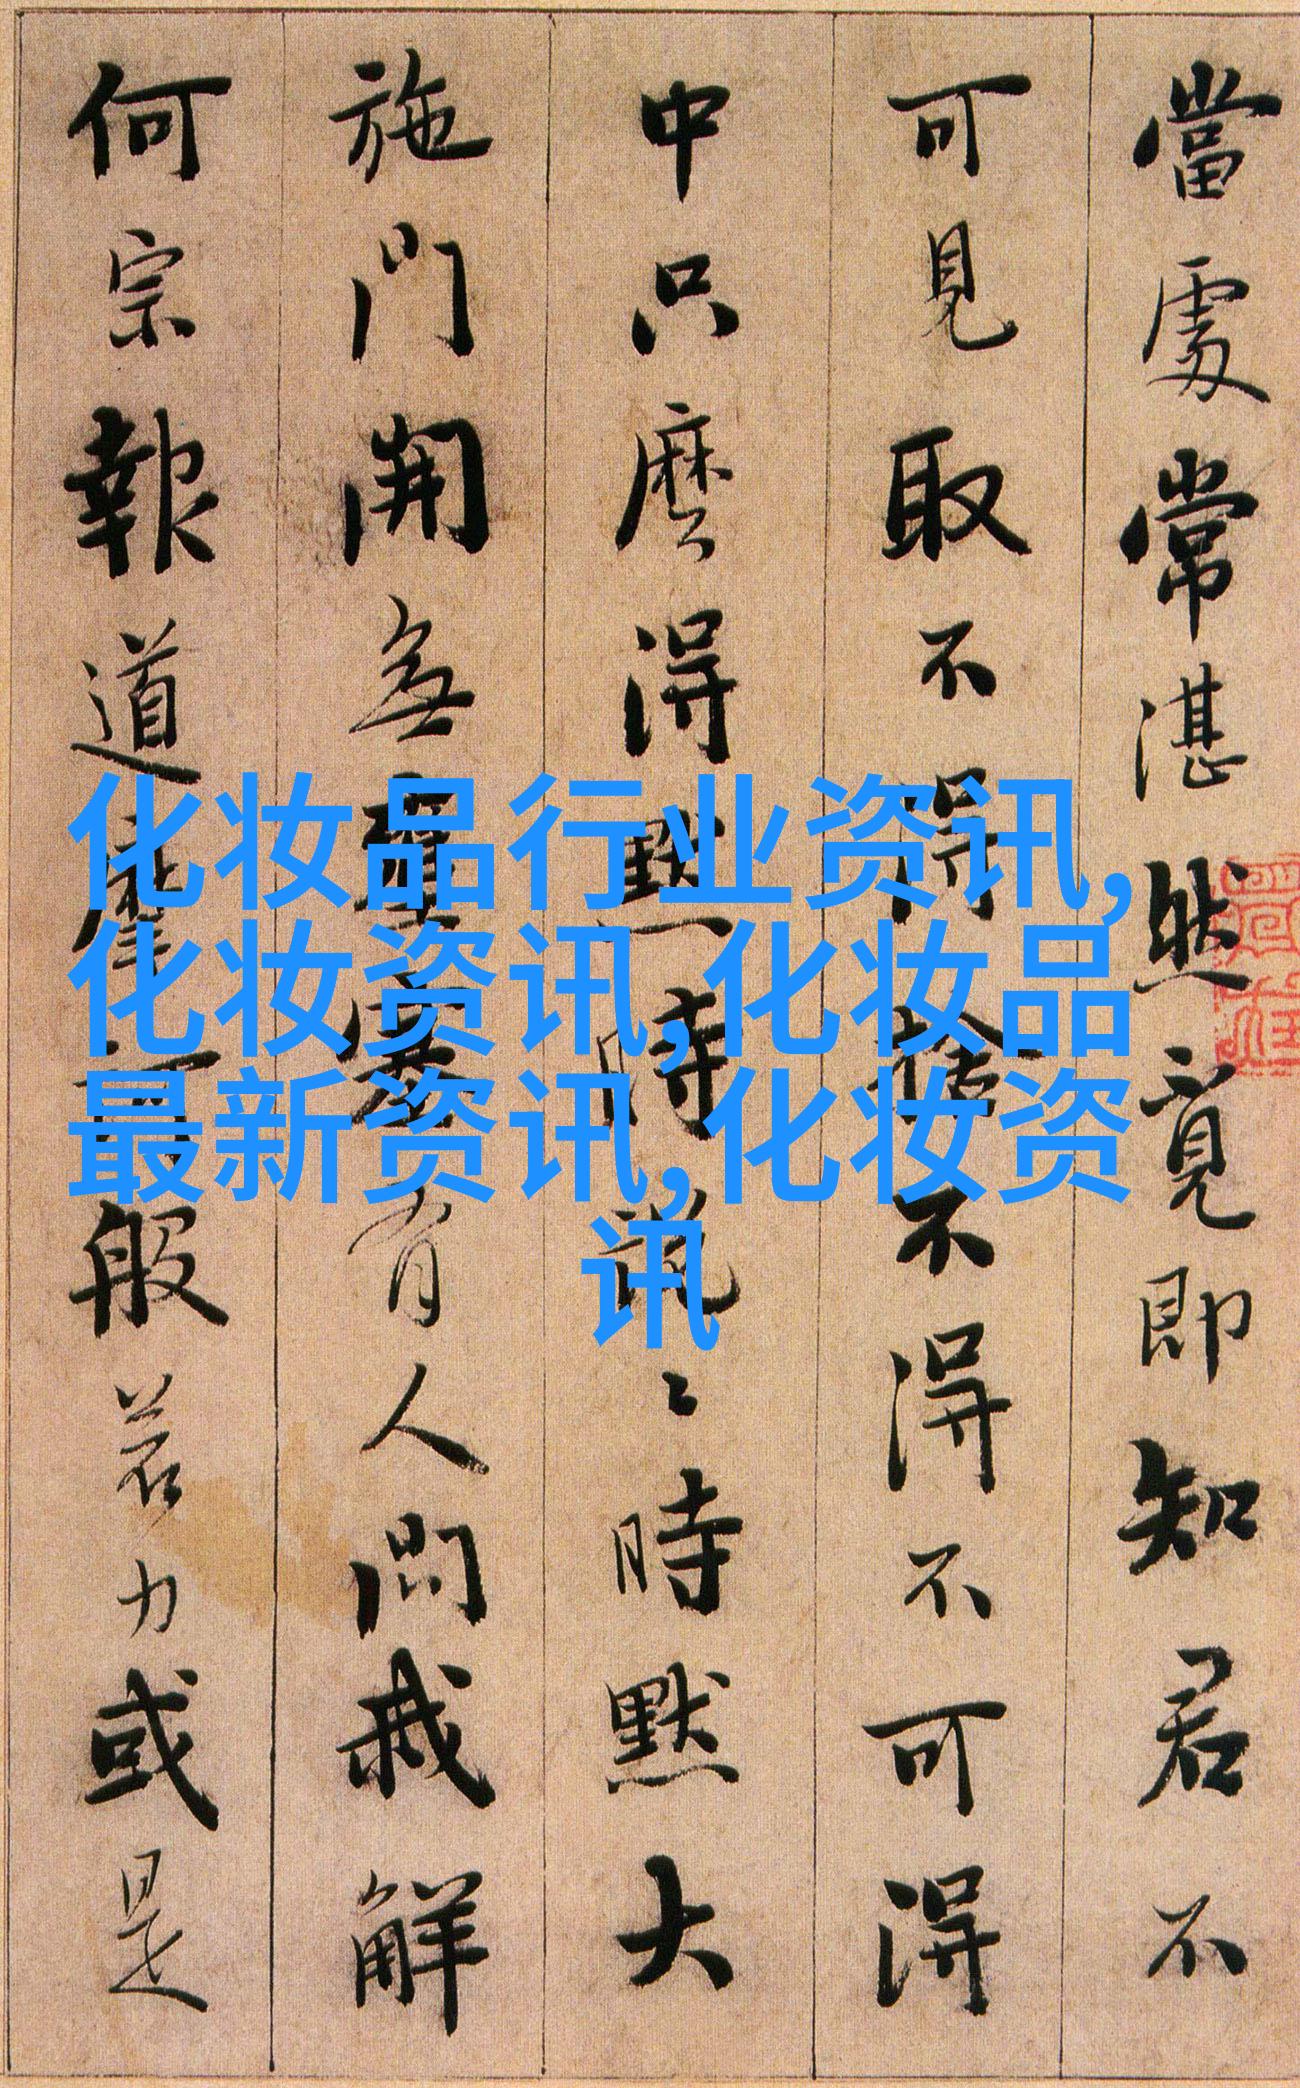 當處常湛然覓即知君不
可見取不得捨不得不可得
中只麼得默時說〻時默大
施門開無壅塞有人問我解
何宗報道摩訶般若力或是
化妆品行业资讯,
化妆资讯,化妆品
最新资讯,化妆资
讯